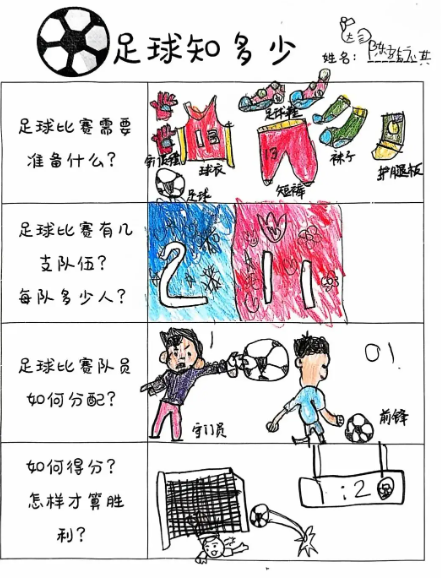 足球知多少
姓名：
足球比赛需要
准备什么？
足球鞋
球衣
短裤
袜子
护腿板
足球
13
13
足球比赛有几
支队伍？
每队多少人？
2
11
足球比赛队员
如何分配？
守门员
前锋
如何得分？
怎样才算胜
利？
1:2